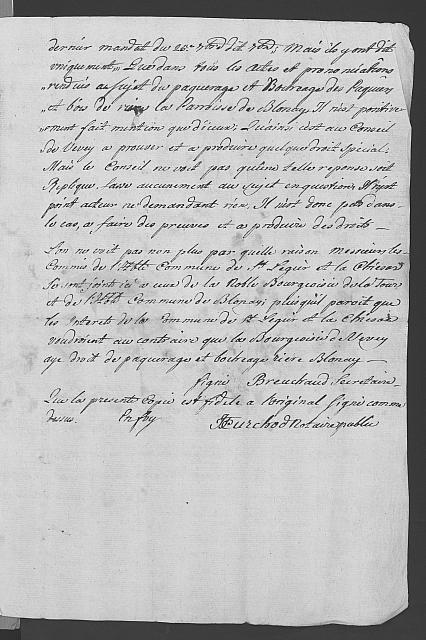 dernier mandat du 25e dit Mais ils y ont dit
uniquement, Que dans tous les actes et prononciations
rendües au sujet du paquerage et Bochéage des Paquiers
et bois de rière la Parroisse de Blonay, Il n'est
ment fait mention que d'iceux; c'est au Conseil
de Vevey a prouver et a produire quelque droit spécial;
Mais le Conseil ne voit pas qu'une telle réponse soit
Replique, fasse aucunement au sujet en question, Il n'est
point acteur ne demandant rien, Il n'est donc pas dans
le cas, a faire des preuves et a produire des droits.
L'on ne voit pas non plus par quelle raison messieurs les
Commis de l'hble Commune de St Legier et la Chiesaz
se sont joints ici a ceux de la Noble Bourgeoisie de la Tour
et de l'hble Commune de Blonay puisqu'il paroit que
les Interets de la Commune de St Legier et la Chiesaz
voudroient au contraire que la Bourgeoisie de Vevey
aye droit de paquerage et bochéage rière Blonay.
Signé Secrétaire.
Que la presente Copie est fidele a l'original signé comme
dessus. En foy Notaire public